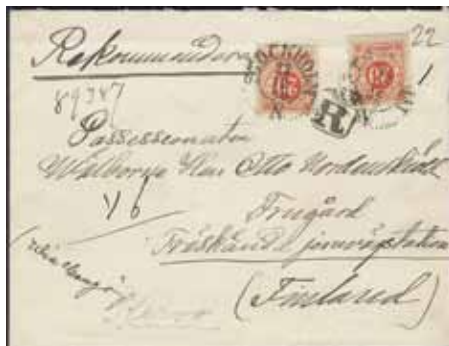 Rekommenderas
22
STOCKHOLM
20
20
R
1
89347
Possessionaten
Wälborne Herr Otto Nordenskiöld
Frugård
Träskända jernvägstation
(Finland)